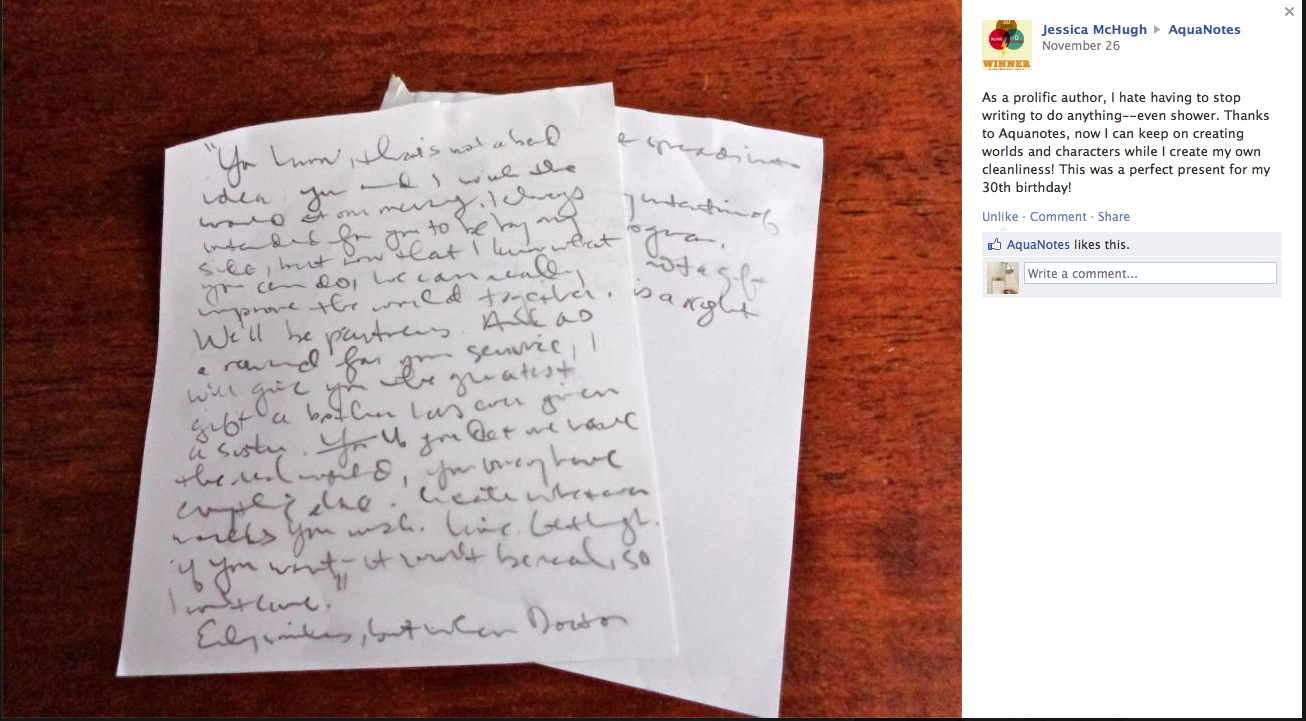 "You know, that's not a bad
idea. you and I with the
world at our mercy. I always
intended for you to be by my
side, but now that I know what
you can do, we can really
improve the world together.
We'll be partners. And as
a reward for your service, I
will give you the greatest
gift a brother has ever given
a sister. You If you let me have
the real world, you may have
everything else. Create whatever
worlds you wish. Live.
if you want - it won't be real, so
I won't care."
but when Doctor
not a gift
is a right
WINNER
Jessica McHugh ▸ AquaNotes
November 26
As a prolific author, I hate having to stop
writing to do anything--even shower. Thanks
to Aquanotes, now I can keep on creating
worlds and characters while I create my own
cleanliness! This was a perfect present for my
30th birthday!
Unlike · Comment · Share
AquaNotes likes this.
Write a comment...